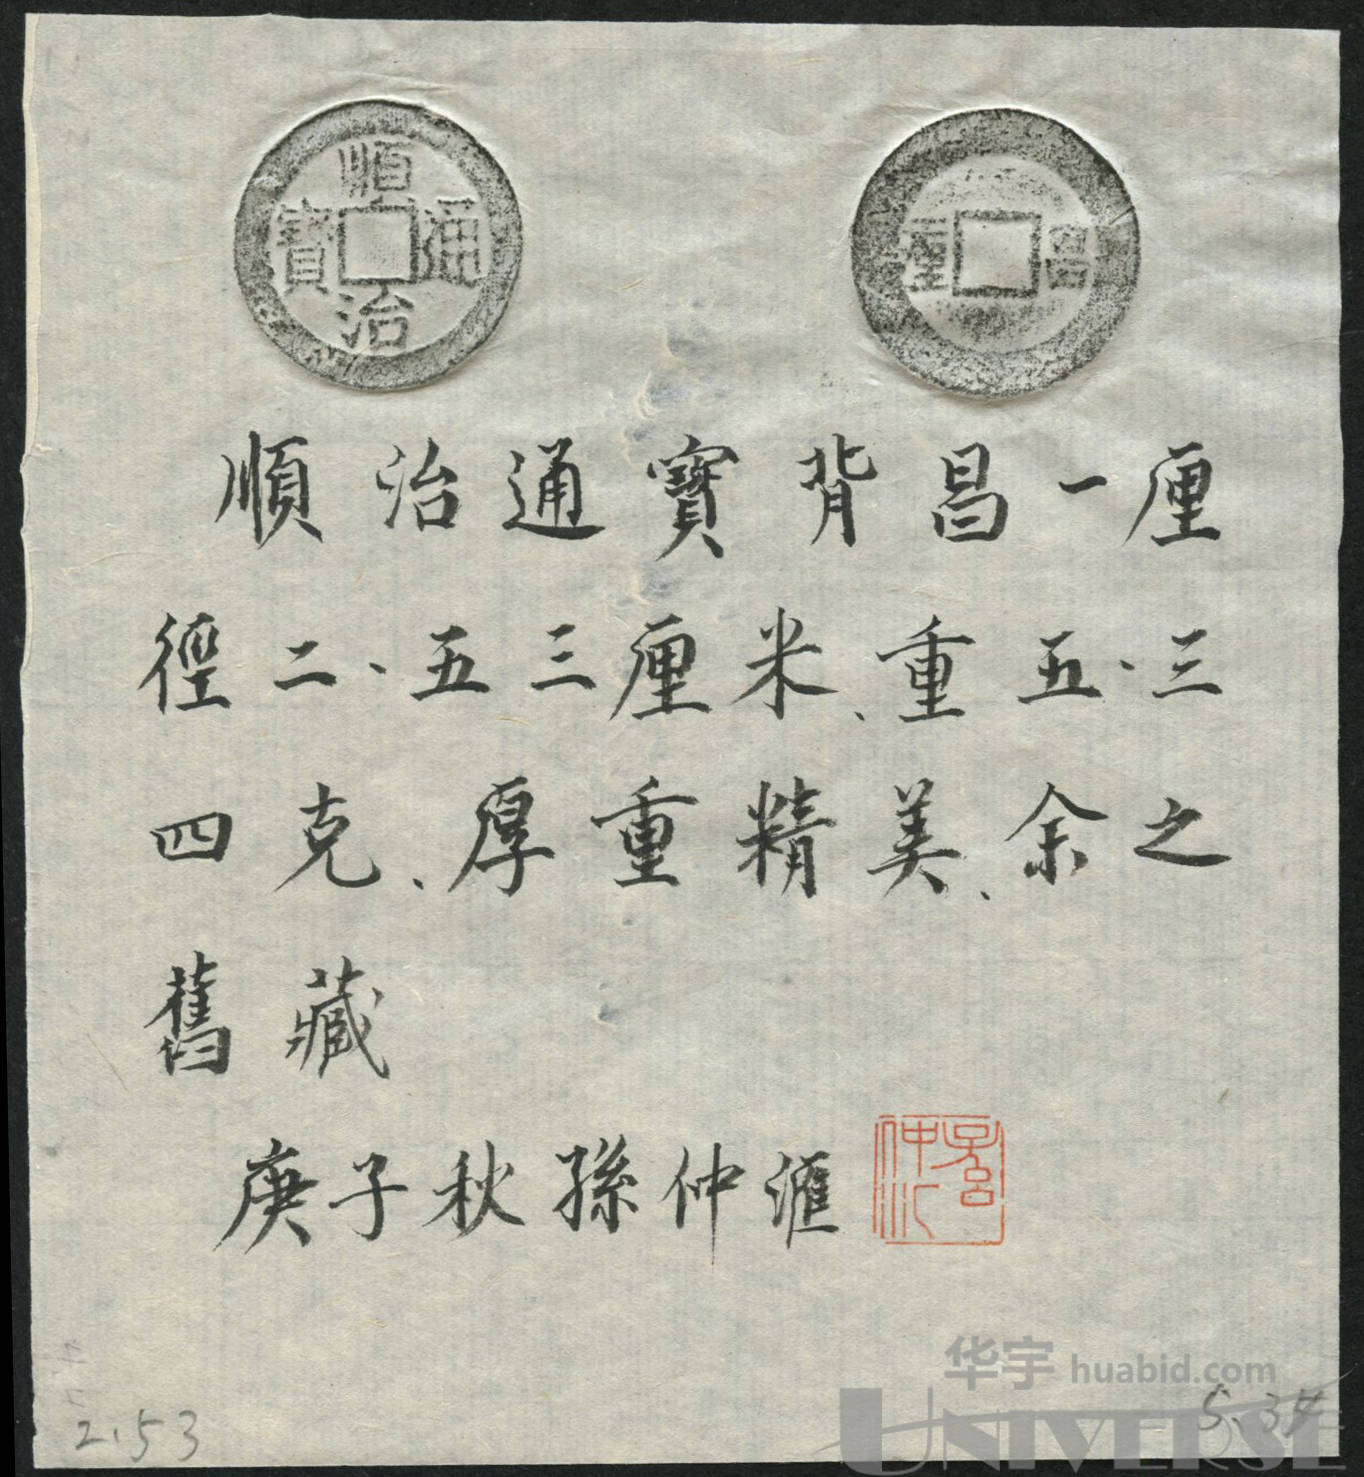 順治通寶
昌一厘
順治通寶背昌一厘
徑二、五三厘米、重五、三
四克、厚重精美、余之
舊藏
庚子秋孫仲滙
孫仲汇
2.53
5.34
华宇 huabid.com
UNIVERSE